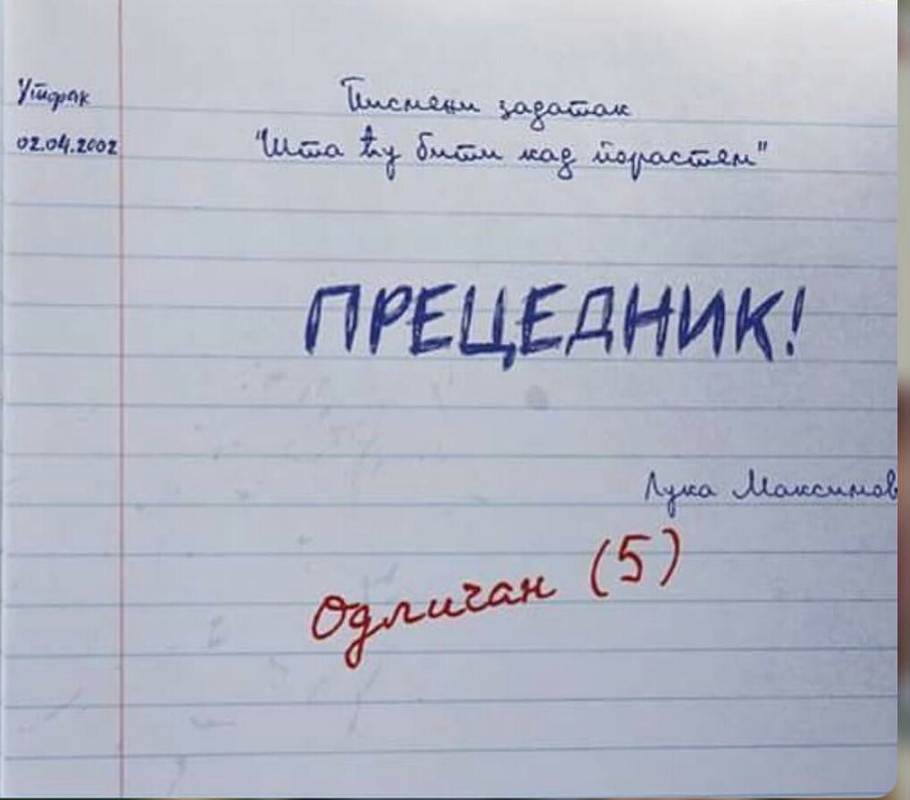 Уторак
Писмени задатак
02.04.2002
"Шта ћу бити кад порастем"
ПРЕЦЕДНИК!
Лука Максимов
Одличан (5)